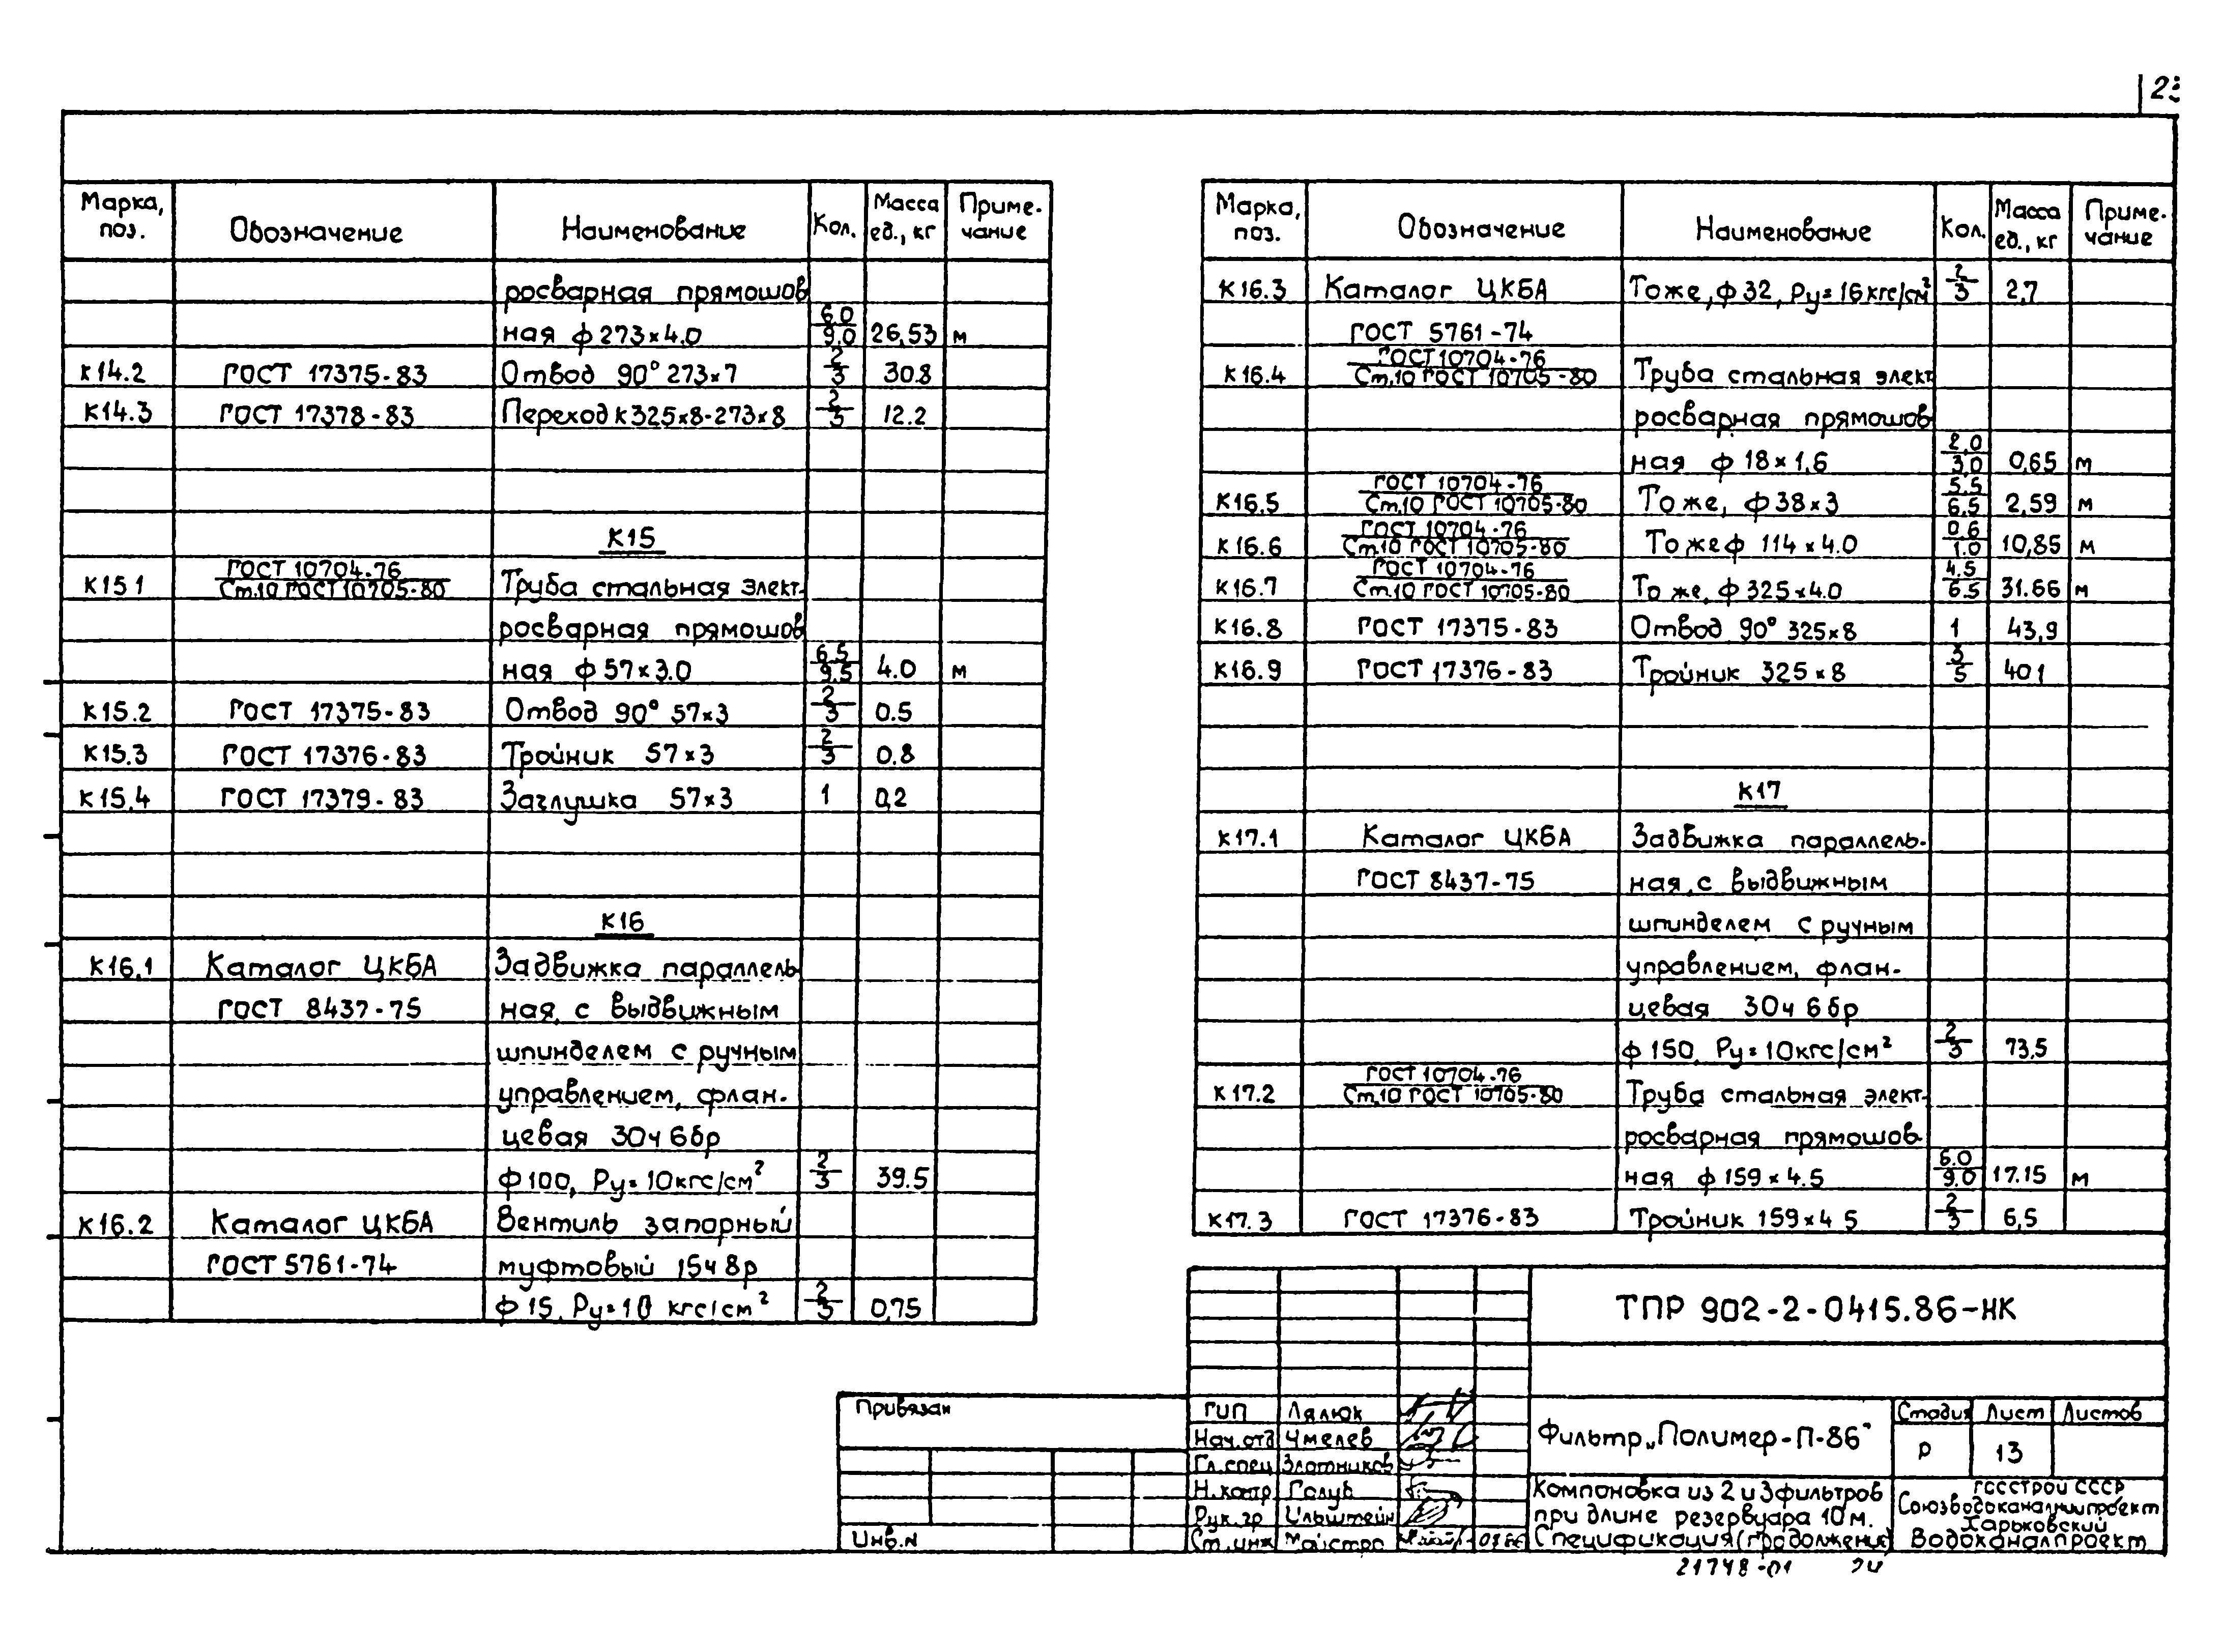 Марка, поз. Обозначение Наименование Кол. Масса ед., кг Приме-чание
росварная прямошов
ная ф 273×4.0 6.0/9.0 26,53 м
К14.2 ГОСТ 17375-83 Отвод 90° 273×7 2/3 30.8
К14.3 ГОСТ 17378-83 Переход К325×8-273×8 2/3 12.2
К15
К15 1 ГОСТ 10704-76/Ст.10 ГОСТ 10705-80 Труба стальная элект-
росварная прямошов
ная ф 57×3.0 6.5/9.5 4.0 м
К15.2 ГОСТ 17375-83 Отвод 90° 57×3 2/3 0.5
К15.3 ГОСТ 17376-83 Тройник 57×3 2/3 0.8
К15.4 ГОСТ 17379-83 Заглушка 57×3 1 0,2
К16
К16.1 Каталог ЦКБА Задвижка параллель
ГОСТ 8437-75 ная, с выдвижным
шпинделем с ручным
управлением, флан-
цевая 30ч 6бр
ф 100, Ру=10кгс/см² 2/3 39.5
К16.2 Каталог ЦКБА Вентиль запорный
ГОСТ 5761-74 муфтовый 15ч 8р
ф 15, Ру=10 кгс/см² 2/3 0,75
23
Марка, поз. Обозначение Наименование Кол. Масса ед., кг Приме-чание
К16.3 Каталог ЦКБА То же, ф 32, Ру=16кгс/см² 2/3 2,7
ГОСТ 5761-74
К16.4 ГОСТ 10704-76/Ст.10 ГОСТ 10705-80 Труба стальная элект
росварная прямошов
ная ф 18×1,6 2,0/3,0 0,65 м
К16.5 ГОСТ 10704-76/Ст.10 ГОСТ 10705-80 То же, ф 38×3 5.5/6.5 2,59 м
К16.6 ГОСТ 10704-76/Ст.10 ГОСТ 10705-80 То же ф 114×4.0 0.6/1.0 10,85 м
К16.7 ГОСТ 10704-76/Ст.10 ГОСТ 10705-80 То же, ф 325×4.0 4.5/6.5 31.66 м
К16.8 ГОСТ 17375-83 Отвод 90° 325×8 1 43,9
К16.9 ГОСТ 17376-83 Тройник 325×8 3/5 40 1
К17
К17.1 Каталог ЦКБА Задвижка параллель-
ГОСТ 8437-75 ная, с выдвижным
шпинделем с ручным
управлением, флан-
цевая 30ч 6бр
ф 150, Ру=10кгс/см² 2/3 73,5
К17.2 ГОСТ 10704-76/Ст.10 ГОСТ 10705-80 Труба стальная элект-
росварная прямошов-
ная ф 159×4.5 6.0/9.0 17.15 м
К17.3 ГОСТ 17376-83 Тройник 159×4 5 2/3 6,5
ТПР 902-2-0415.86-НК
Привязан
Инв.N
ГИП Лялюк
Нач.отд Чмелев
Гл.спец Злотников
Н.контр Голуб
Рук.гр Ильштейн
Ст.инж Майстро
Фильтр „Полимер-П-86"
Стадия Лист Листов
Р 13
Компоновка из 2 и 3 фильтров
при длине резервуара 10 м.
Спецификация (продолжение)
ГОССТРОЙ СССР
Союзводоканалниипроект
Харьковский
Водоканалпроект
21748-01 24